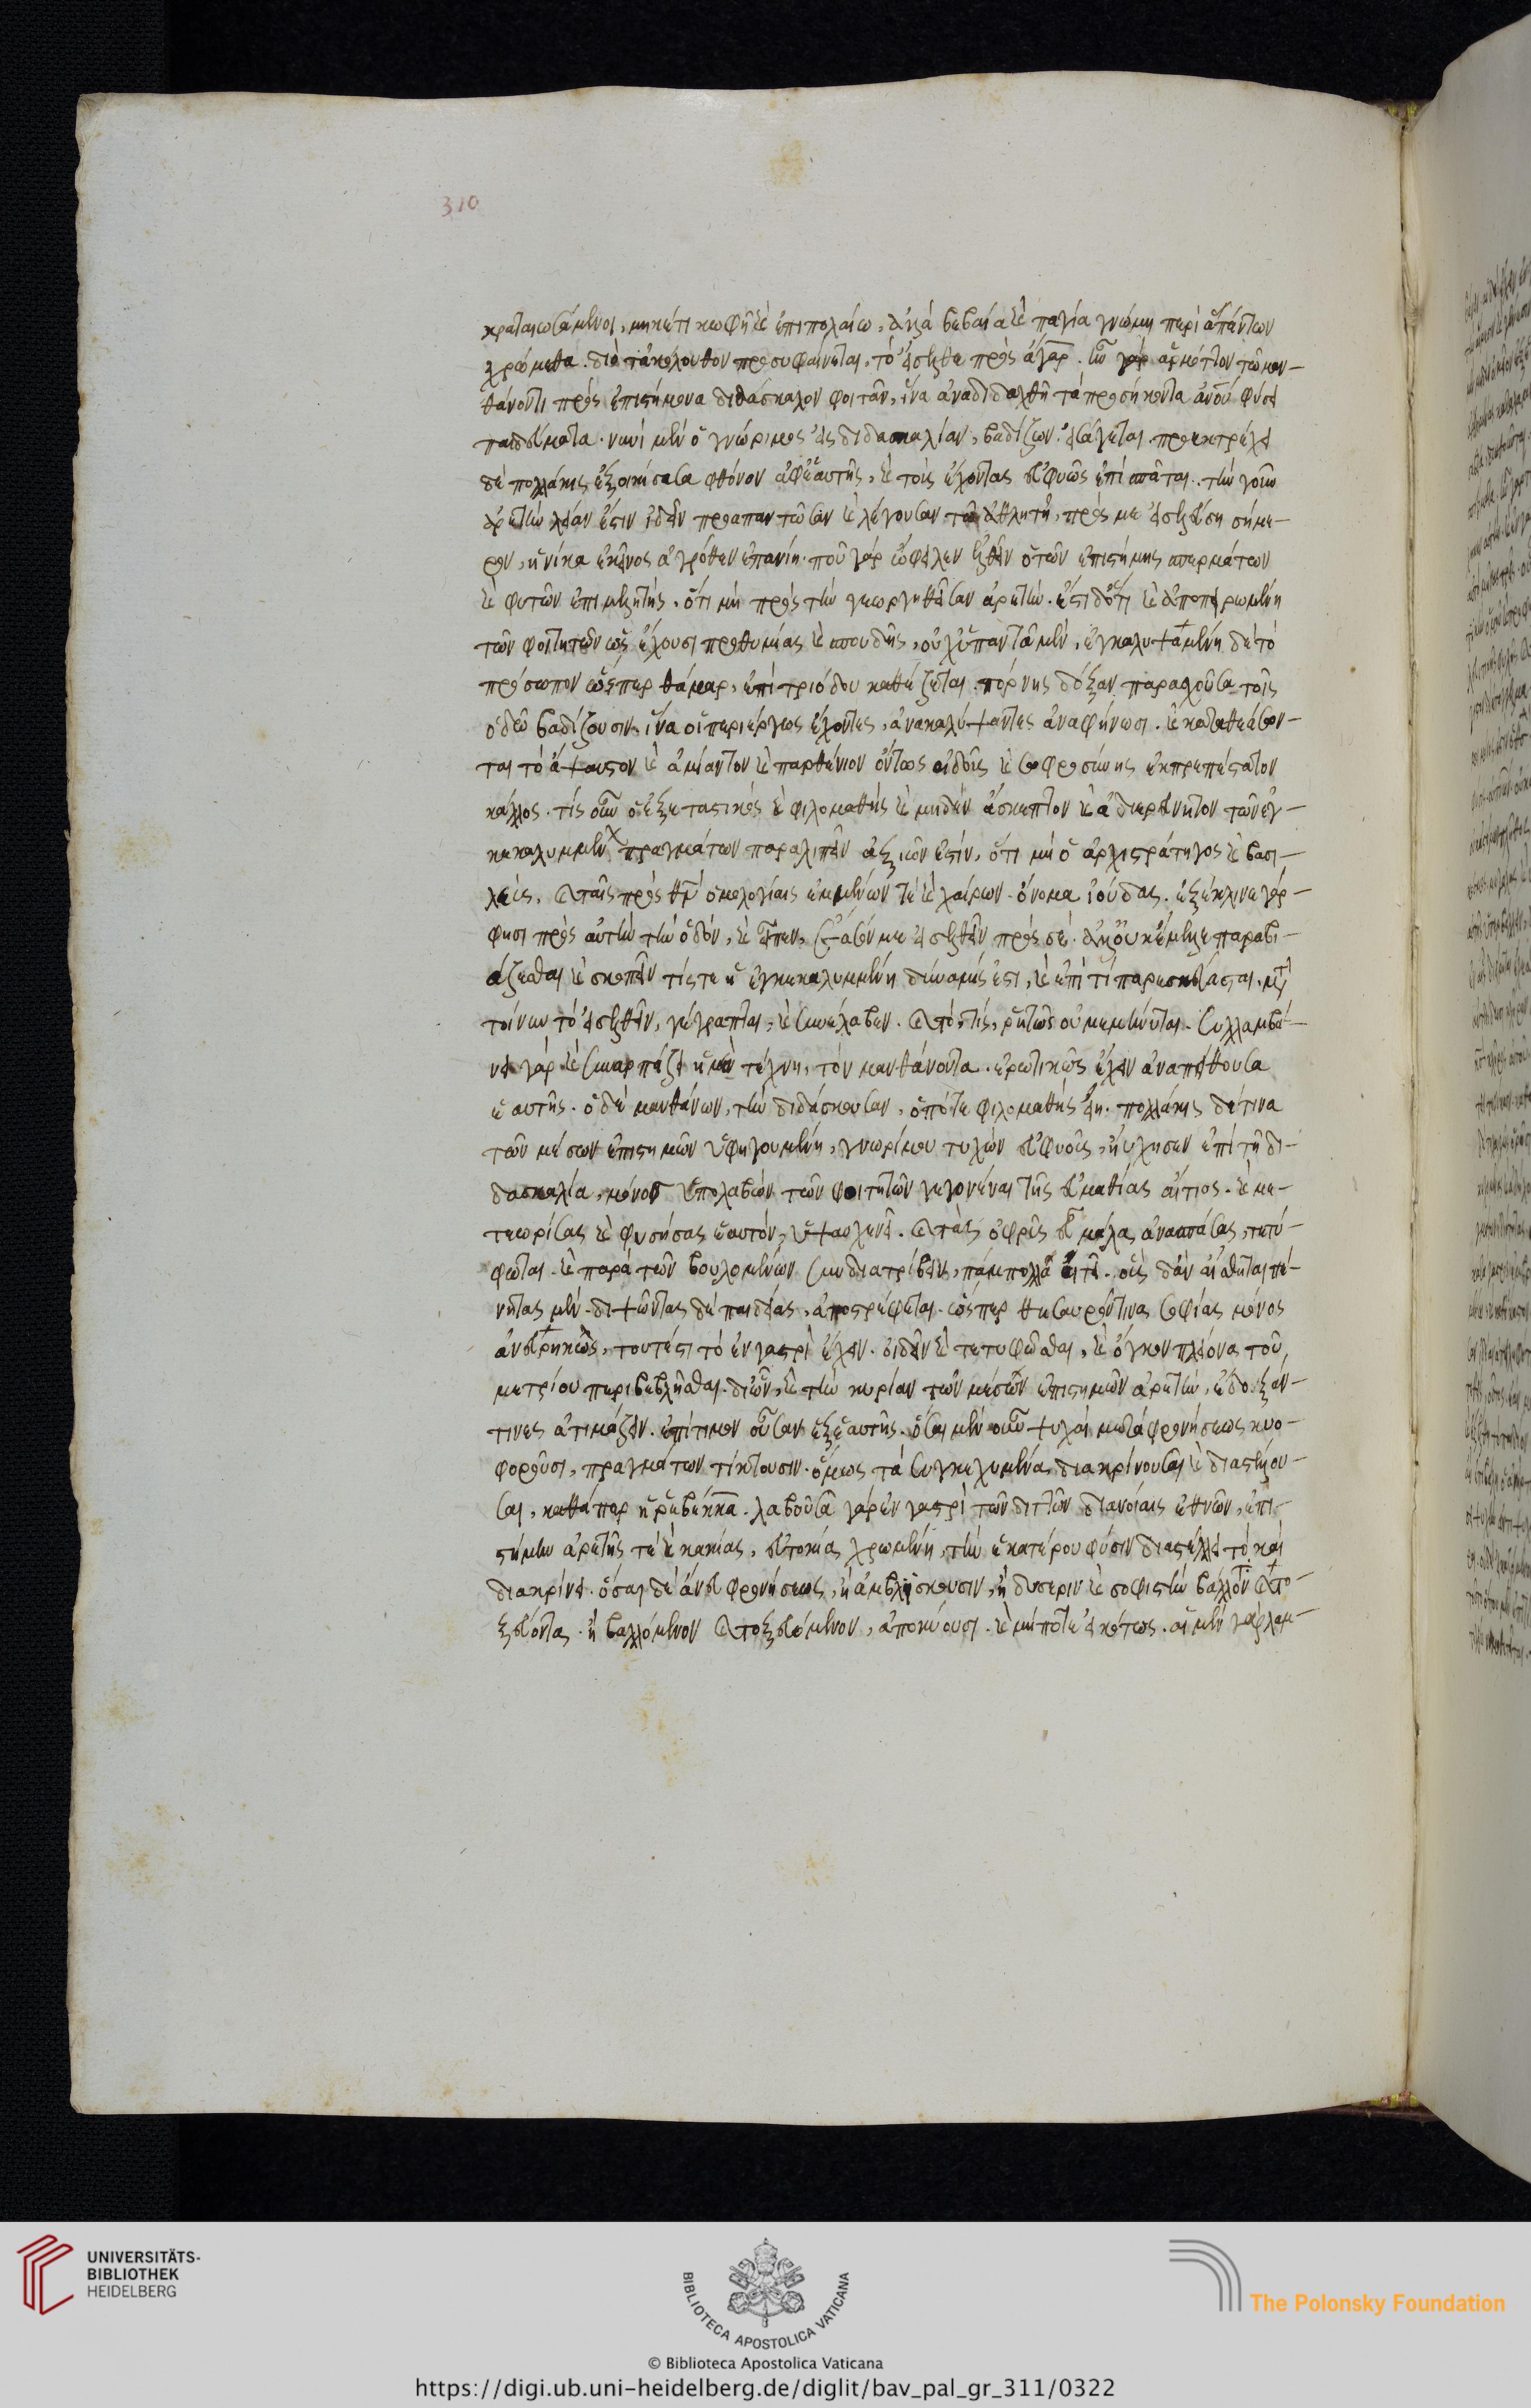 κραταιωσάμενοι, μηκέτι κωφῇ καὶ ἐπιπολαίω, ἀλλὰ βεβαία καὶ παγία γνώμη περὶ ἁπάντων
χρώμεθα. διὸ τἀκόλουθον προσυφαίνεται, τὸ εἴσελθε πρὸς ἄγαρ. ἦν γὰρ ἁρμόττον τῶ μαν-
θάνοντι πρὸς ἐπιστήμονα διδάσκαλον φοιτᾶν, ἵνα ἀναδιδαχθῆ τὰ προσήκοντα ἀνοῦ φύσει
παιδεύματα. νυνὶ μὲν ὁ γνώριμος εἰς διδασκαλίαν, βαδίζων εἰσάγεται. προεκτρέχει
δὲ πολλάκις ἐξοικίσασα φθόνον ἀφ' ἑαυτῆς, καὶ τοὺς ἔχοντας εὐφυῶς ἐπισπᾶται. τὴν γοῦν
ἀρετὴν λείαν ἔστιν ἰδεῖν προαπαντῶσαν καὶ λέγουσαν τῶ ἀθλητῆ, πρός με εἰσελεύση σήμε-
ρον, ἡνίκα ἐκεῖνος ἀγρόθεν ἐπανίη. ποῦ γὰρ ὤφειλεν ἐλθεῖν ὁ τῶν ἐπιστήμης σπερμάτων
καὶ φυτῶν ἐπιμελητής, ὅτι μὴ πρὸς τὴν γεωργηθεῖσαν ἀρετήν. ἔστι δ' ὅτι καὶ ἀποπειρωμένη
τῶν φοιτητῶν ὡς ἔχουσι προθυμίας καὶ σπουδῆς, οὐχ ὑπαντᾶ μὲν, ἐγκαλυψαμένη δὲ τὸ
πρόσωπον ὥσπερ θάμαρ, ἐπὶ τριόδου καθέζεται, πόρνης δόξαν παρασχοῦσα τοῖς
ὁδῶ βαδίζουσιν, ἵνα οἱ περιέργως ἔχοντες, ἀνακαλύψαντες ἀναφήνωσι. καὶ καταθεάσων-
ται τὸ ἄψαυστον καὶ ἀμίαντον καὶ παρθένιον ὄντως αἰδοῦς καὶ σωφροσύνης ἐκπρεπέστατον
κάλλος. τίς οὖν ὁ ἐξεταστικὸς καὶ φιλομαθὴς καὶ μηδὲν ἄσκεπτον καὶ ἀδιερεύνητον τῶν ἐγ-
κεκαλυμμένων πραγμάτων παραλιπεῖν ἀξιῶν ἐστίν, ὅτι μὴ ὁ ἀρχιστράτηγος καὶ βασι-
λεὺς, καὶ ταῖς πρὸς θν̄ ὁμολογίαις ἐμμένων τε καὶ χαίρων, ὄνομα ἰούδας. ἐξέκλινε γάρ
φησι πρὸς αὐτὴν τὴν ὁδὸν, καὶ εἶπεν, ἔασόν με εἰσελθεῖν πρὸς σέ. ἀλλ' οὐκ ἔμελλε παραβι-
άζεσθαι καὶ σκοπεῖν τίς τε ἡ ἐγκεκαλυμμένη δύναμίς ἐστι, καὶ ἐπὶ τί παρεσκεύασται. μετὰ
τοίνυν τὸ εἰσελθεῖν, γέγραπται, καὶ συνέλαβεν. τὸ, τίς, ῥητῶς οὐ μεμήνυται. συλλαμβά-
νει γὰρ καὶ συναρπάζει ἡ μὲν τέχνη, τὸν μανθάνοντα. ἐρωτικῶς ἔχειν ἀναπείθουσα
ἑαυτῆς. ὁ δὲ μανθάνων, τὴν διδάσκουσαν, ὁπότε φιλομαθὴς εἴη. πολλάκις δέ τινα
τῶν μέσων ἐπιστημῶν ὑφηγουμένη, γνωρίμου τυχὼν εὐφυοῦς, ηὔχησεν ἐπὶ τῆ δι-
δασκαλία, μόνος ὑπολαβὼν τῶν φοιτητῶν γεγονέναι τῆς εὐμαθίας αἴτιος. καὶ με-
τεωρίσας καὶ φυσήσας ἑαυτὸν, ὑψαυχενεῖ. καὶ τὰς ὀφρῦς εὖ μάλα ἀνασπάσας, τετύ-
φωται. καὶ παρὰ τῶν βουλομένων συνδιατρίβειν, πάμπολλα αἰτεῖ. οὓς δ' ἂν αἴσθηται πέ-
νητας μὲν διψῶντας δὲ παιδείας, ἀποστρέφεται. ὥσπερ θησαυρόν τινα σοφίας μόνος
ἀνευρηκώς, τουτέστι τὸ ἐν γαστρὶ ἔχειν. οἰδεῖν καὶ τετυφῶσθαι, καὶ ὄγκον πλείονα τοῦ
μετρίου περιβεβλῆσθαι. δι' ὧν, καὶ τὴν κυρίαν τῶν μέσων ἐπιστημῶν ἀρετὴν, ἔδοξάν
τινες ἀτιμάζειν. ἐπίτιμον οὖσαν ἐξ ἑαυτῆς. ὅσαι μὲν οὖν ψυχαὶ μετὰ φρονήσεως κυο-
φοροῦσι, πραγμάτων τίκτουσιν. ὅμως τὰ συγκεχυμένα διακρίνουσαι καὶ διαστέλλου-
σαι, καθάπερ ἡ ῥεβέκκα. λαβοῦσα γὰρ ἐν γαστρὶ τῶν διττῶν διανοίαις ἐθνῶν, ἐπι-
στήμην ἀρετῆς τε καὶ κακίας, εὐτοκία χρωμένη, τὴν ἑκατέρου φύσιν διαστέλλει τε καὶ
διακρίνει. ὅσαι δὲ ἄνευ φρονήσεως, ἢ ἀμβλίσκουσιν, ἢ δύσεριν καὶ σοφιστὴν βάλλοντα καὶ το-
ξεύοντα. ἢ βαλλόμενον καὶ τοξευόμενον, ἀποκύουσι. καὶ μήποτε εἰκότως. αἱ μὲν γὰρ λαμ-
310
UNIVERSITÄTS-
BIBLIOTHEK
HEIDELBERG
BIBLIOTECA APOSTOLICA VATICANA
The Polonsky Foundation
© Biblioteca Apostolica Vaticana
https://digi.ub.uni-heidelberg.de/diglit/bav_pal_gr_311/0322